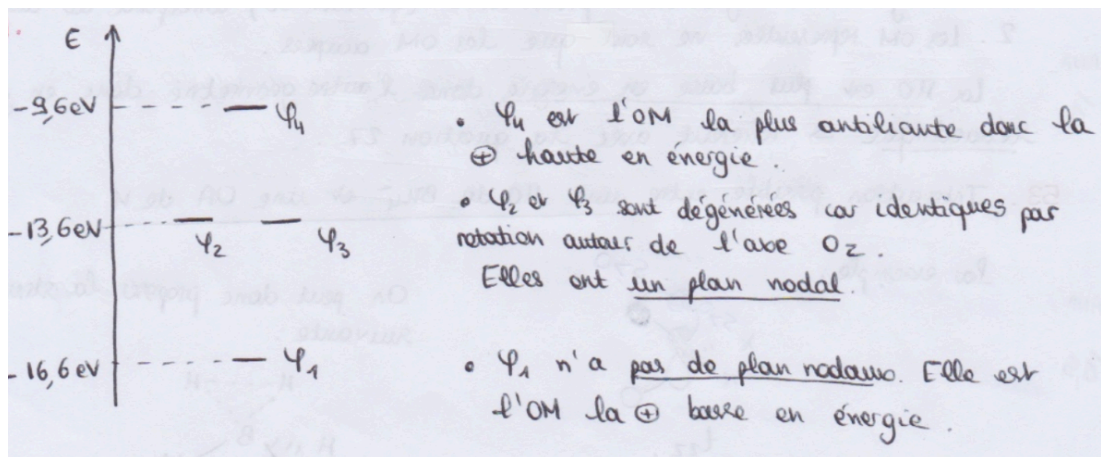 E
-9,6eV
φ4
• φ4 est l'OM la plus antiliante donc la
⊕ haute en énergie.
-13,6eV
φ2 φ3
• φ2 et φ3 sont dégénérées car identiques par
rotation autour de l'axe Oz.
Elles ont un plan nodal.
-16,6eV
φ1
• φ1 n'a pas de plan nodaux. Elle est
l'OM la ⊕ basse en énergie.